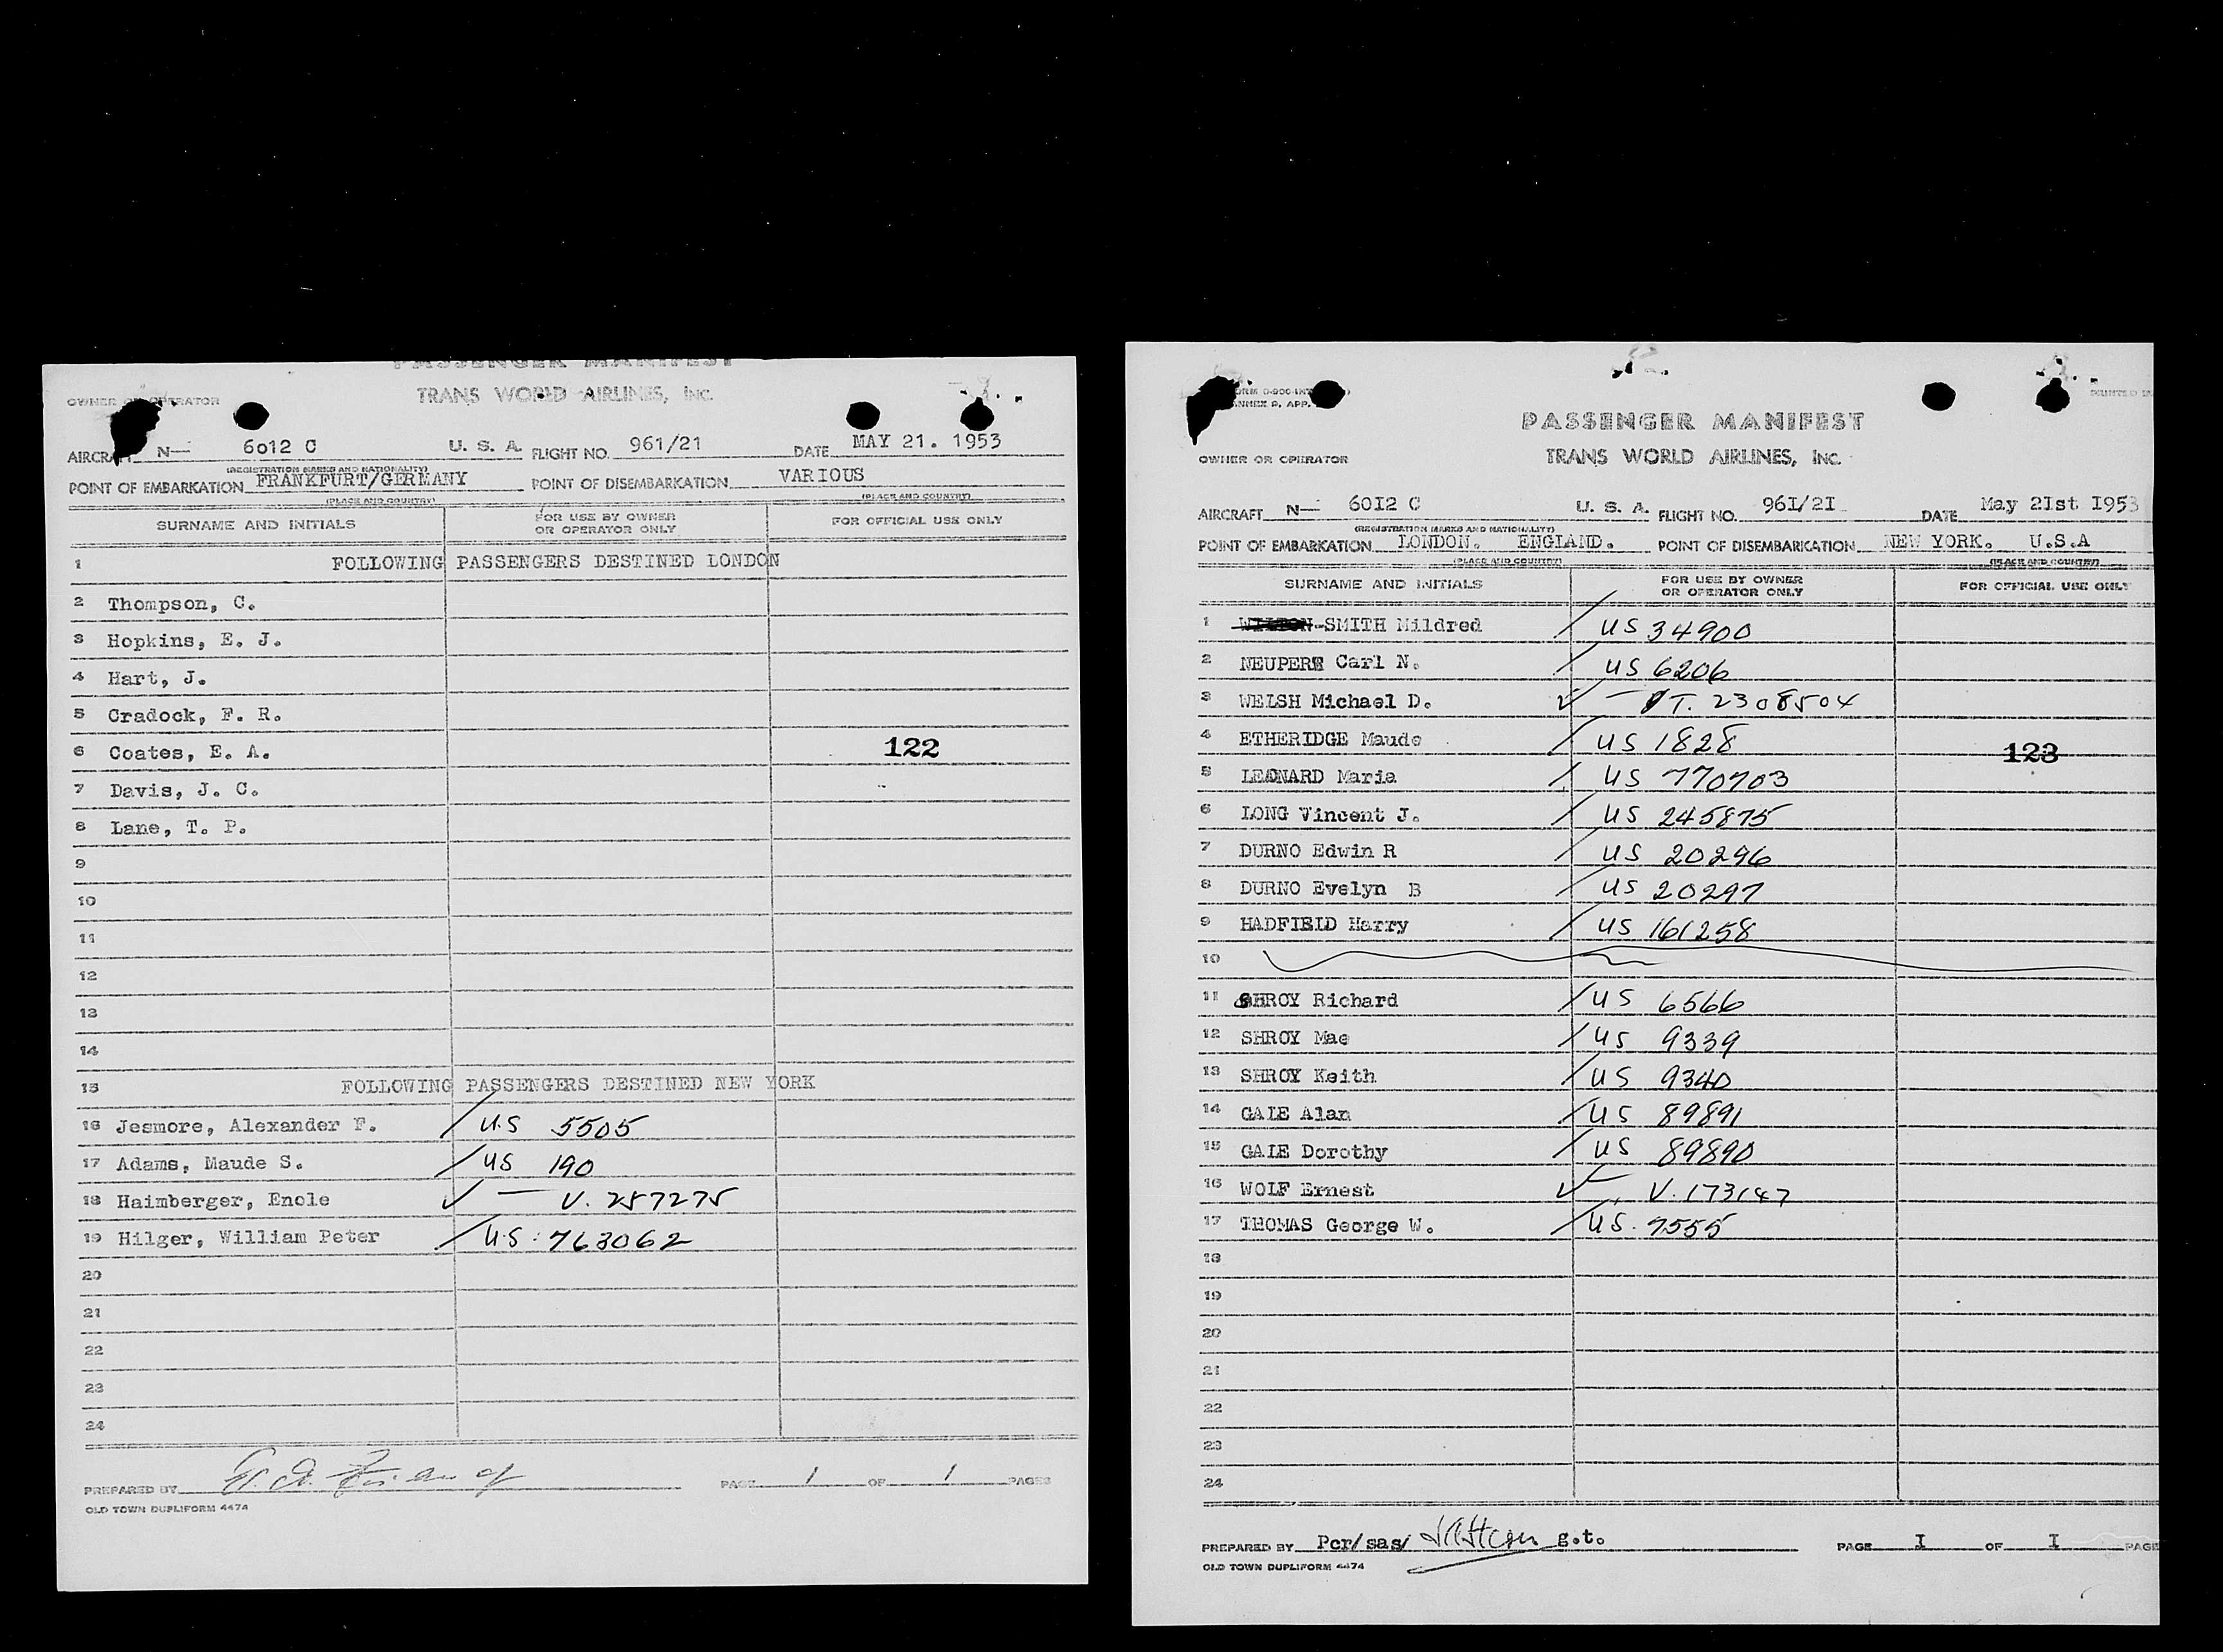 PASSENGER MANIFEST
TRANS WORLD AIRLINES, INC.
OWNER OR OPERATOR
AIRCRAFT N— 6012 C U. S. A. FLIGHT NO. 961/21 DATE MAY 21. 1953
(REGISTRATION MARKS AND NATIONALITY)
POINT OF EMBARKATION FRANKFURT/GERMANY POINT OF DISEMBARKATION VARIOUS
(PLACE AND COUNTRY) (PLACE AND COUNTRY)
SURNAME AND INITIALS FOR USE BY OWNER OR OPERATOR ONLY FOR OFFICIAL USE ONLY
1 FOLLOWING PASSENGERS DESTINED LONDON
2 Thompson, C.
3 Hopkins, E. J.
4 Hart, J.
5 Cradock, F. R.
6 Coates, E. A. 122
7 Davis, J. C.
8 Lane, T. P.
9
10
11
12
13
14
15 FOLLOWING PASSENGERS DESTINED NEW YORK
16 Jesmore, Alexander F. / U.S 5505
17 Adams, Maude S. / US 190
18 Haimberger, Enole ✓ — V. 257275
19 Hilger, William Peter / U.S. 763062
20
21
22
23
24
PREPARED BY PAGE 1 OF 1 PAGES
OLD TOWN DUPLIFORM 4474
PASSENGER MANIFEST
OWNER OR OPERATOR TRANS WORLD AIRLINES, INC.
AIRCRAFT N— 6012 C U. S. A. FLIGHT NO. 961/21 DATE May 21st 1953
(REGISTRATION MARKS AND NATIONALITY)
POINT OF EMBARKATION LONDON. ENGLAND. POINT OF DISEMBARKATION NEW YORK. U.S.A
(PLACE AND COUNTRY) (PLACE AND COUNTRY)
SURNAME AND INITIALS FOR USE BY OWNER OR OPERATOR ONLY FOR OFFICIAL USE ONLY
1 -SMITH Mildred / US 34900
2 NEUPERT Carl N. / US 6206
3 WELSH Michael D. ✓ — T. 2308504
4 ETHERIDGE Maude / US 1828 123
5 LEONARD Maria / US 770703
6 LONG Vincent J. / US 245875
7 DURNO Edwin R / US 20296
8 DURNO Evelyn B / US 20297
9 HADFIELD Harry / US 161258
10
11 SHROY Richard / US 6566
12 SHROY Mae / US 9339
13 SHROY Keith / US 9340
14 GALE Alan / US 89891
15 GALE Dorothy / US 89890
16 WOLF Ernest ✓ — V. 173147
17 THOMAS George W. / US. 7555
18
19
20
21
22
23
24
PREPARED BY Pcr/sas/ g.t.o. PAGE I OF I PAGE
OLD TOWN DUPLIFORM 4474